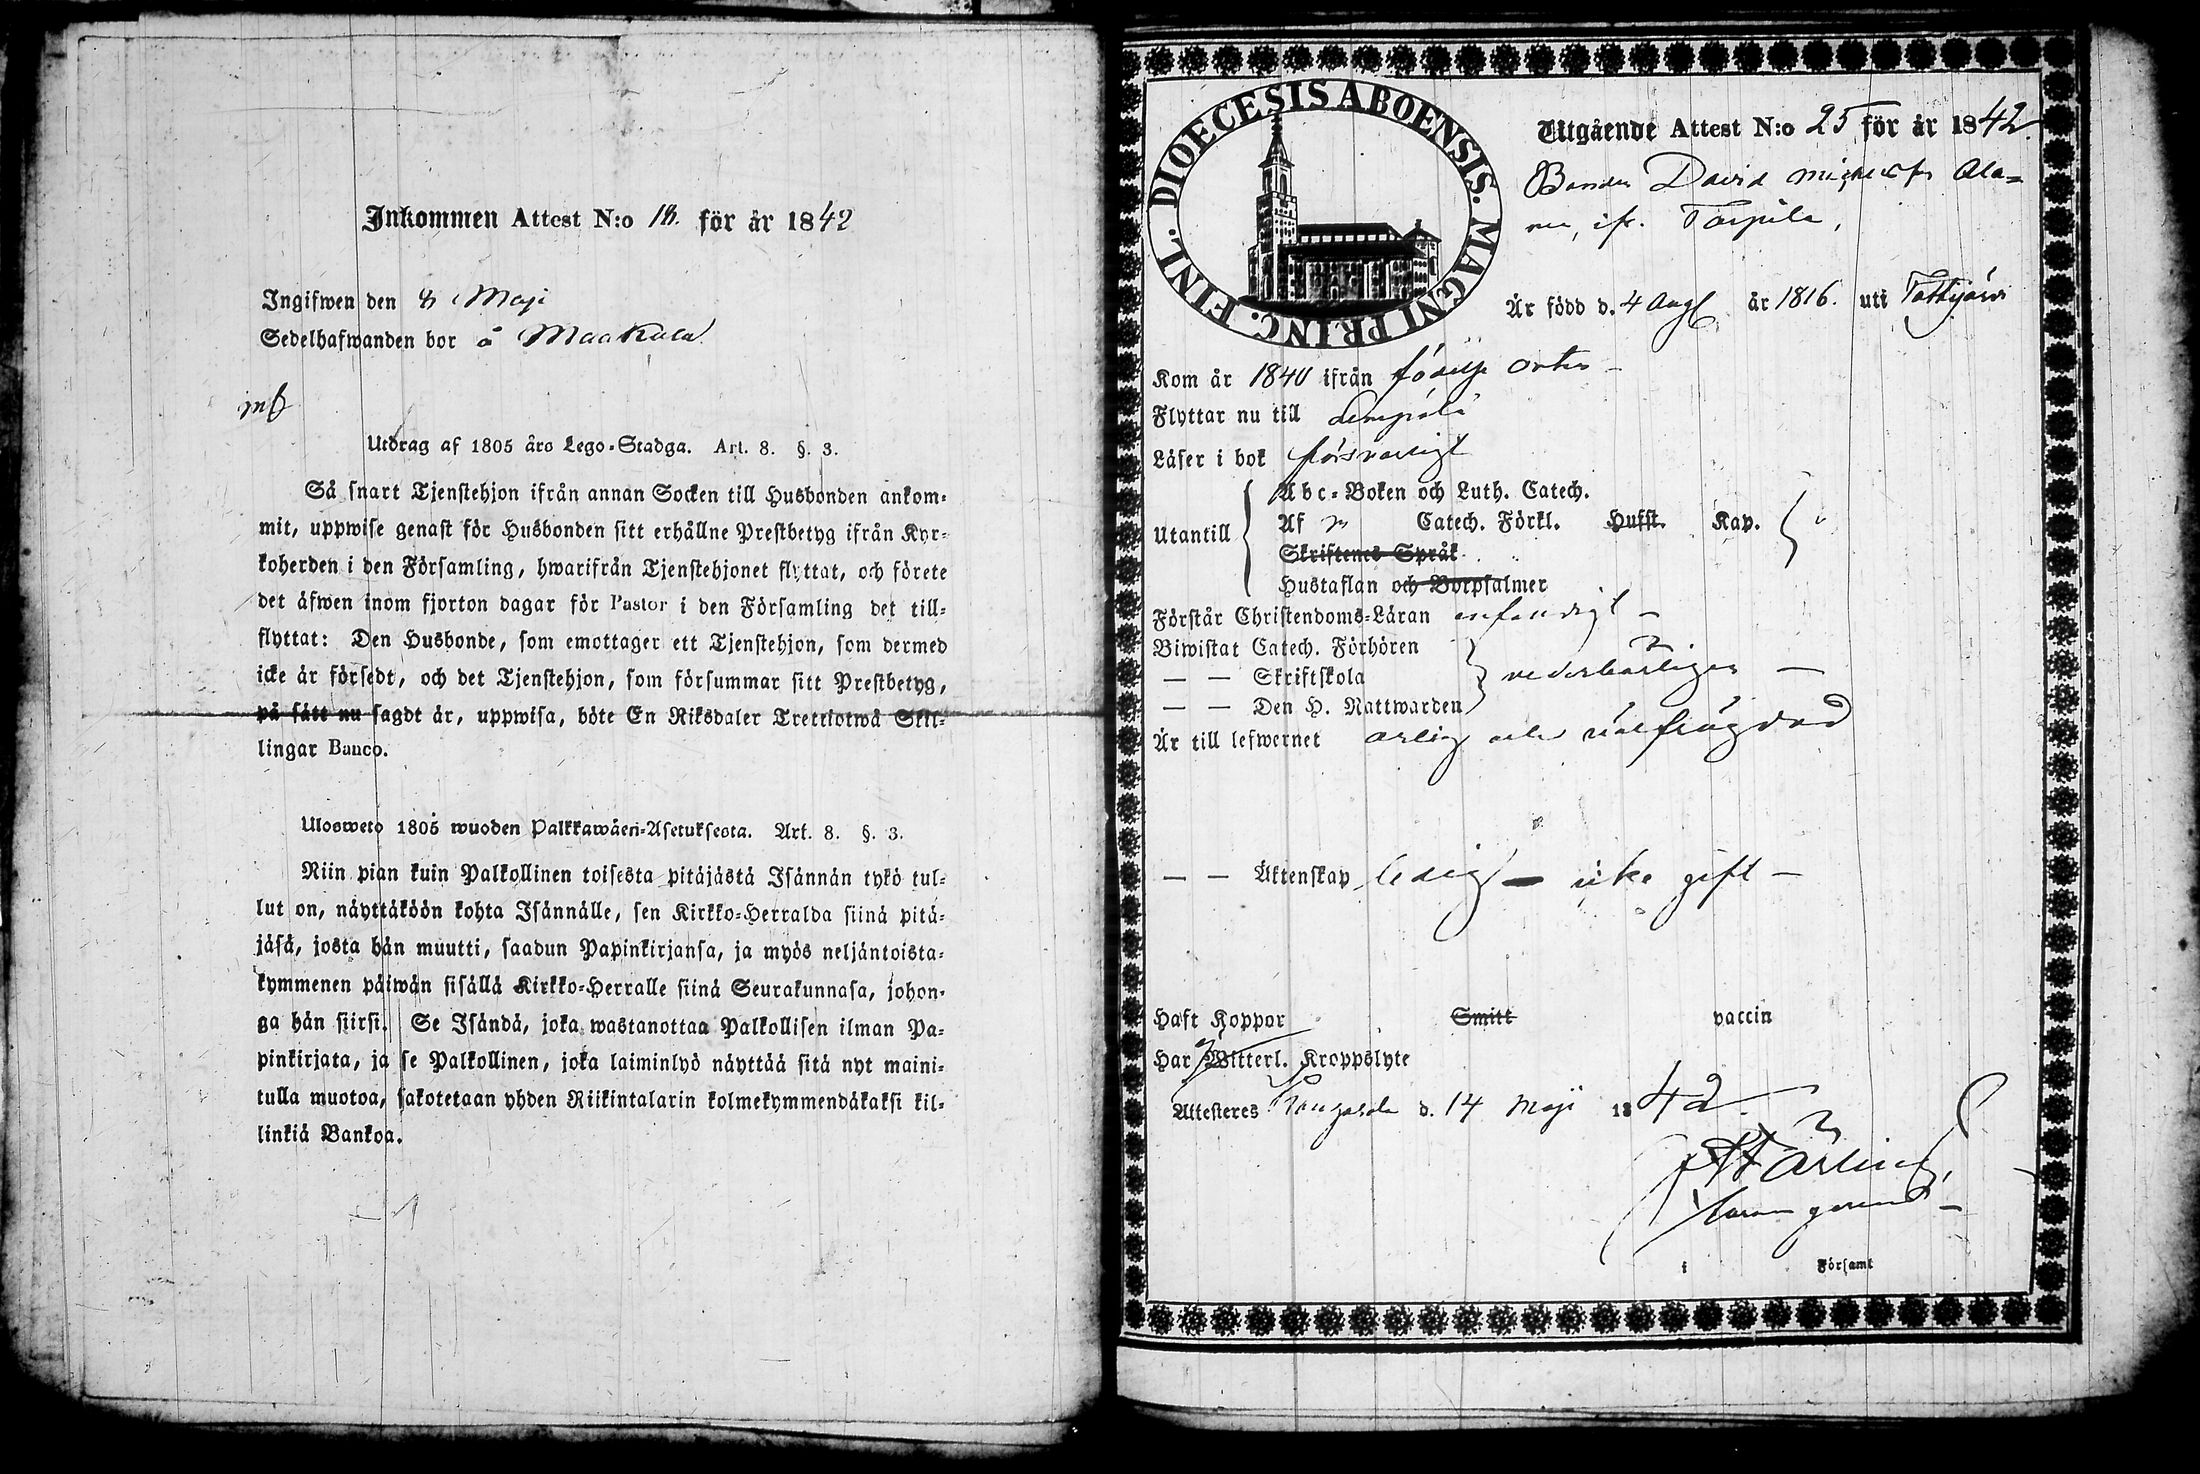 Inkommen Attest N:o 18. för år 1842
Ingifwen den 8 Maji
Sedelhafwanden bor å Maakala
Utdrag af 1805 års Lego-Stadga. Art. 8. §. 3.
Så snart Tjenstehjon ifrån annan Socken till Husbonden ankom-
mit, uppwise genast för Husbonden sitt erhållne Prestbetyg ifrån Kyr-
koherden i den Församling, hwarifrån Tjenstehjonet flyttat, och förete
det äfwen inom fjorton dagar för Pastor i den Församling det till-
flyttat: Den Husbonde, som emottager ett Tjenstehjon, som dermed
icke är försedt, och det Tjenstehjon, som försummar sitt Prestbetyg,
på sätt nu sagdt är, uppwisa, böte En Riksdaler Trettiotwå Skil-
lingar Banco.
Ulosweto 1805 wuoden Palkkawäen-Asetuksesta. Art. 8. §. 3.
Niin pian kuin Palkollinen toisesta pitäjästä Isännän tykö tul-
lut on, näyttäköön kohta Isännälle, sen Kirkko-Herralda siinä pitä-
jäsä, josta hän muutti, saadun Papinkirjansa, ja myös neljäntoista-
kymmenen päiwän sisällä Kirkko-Herralle siinä Seurakunnasa, johon-
ga hän siirsi. Se Isändä, joka wastanottaa Palkollisen ilman Pa-
pinkirjata, ja se Palkollinen, joka laiminlyö näyttää sitä nyt maini-
tulla muotoa, sakotetaan yhden Riikintalarin kolmekymmendäkaksi kil-
linkiä Bankoa.
DIOECESIS ABOENSIS. MAGNI PRINC. FINL.
Utgående Attest N:o 25 för år 1842.
Bonden David Michelss Ala=
nen, ifr. Tarpila,
Är född d. 4 Aug år 1816. uti Pálkjärvi
Kom år 1840 ifrån födelse orten
Flyttar nu till Lempälä
Läser i bok försvarligt
Utantill
Abc-Boken och Luth. Catech.
Af Catech. Förkl. Husst. Kap.
Skriftenes Språk
Hustaflan och Botpsalmer
Förstår Christendoms-Läran enfaldigt
Biwistat Catech. Förhören
— — Skriftskola vederbörligen —
— — Den H. Nattwarden
Är till lefwernet ärlig och välfrägdad
— — Äktenskap ledig — icke gift —
Haft Koppor Smitt vaccin
Har Witterl. Kroppslyte
Attesteres Kangasala d. 14 Maji 1842.
i Församl